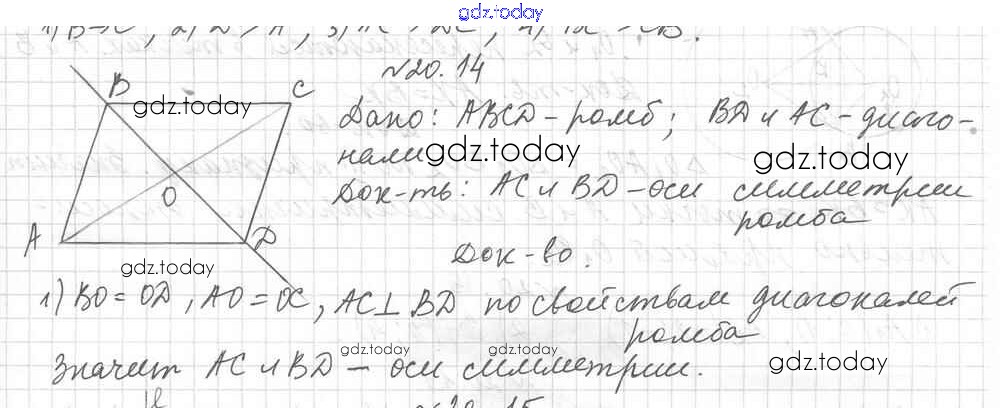 gdz.today
1) B→C, 2) D→A, 3) AC→
№20.14
B C
gdz.today
Дано: ABCD-ромб; BD и AC-диаго-
нали gdz.today gdz.today
Док-ть: AC и BD-оси симметрии
O
ромба
A D
Док-во.
gdz.today
1) BO=OD, AO=OC, AC⊥BD по свойствам диагоналей
ромба
gdz.today gdz.today
Значит AC и BD - оси симметрии.
gdz.today
№20.15